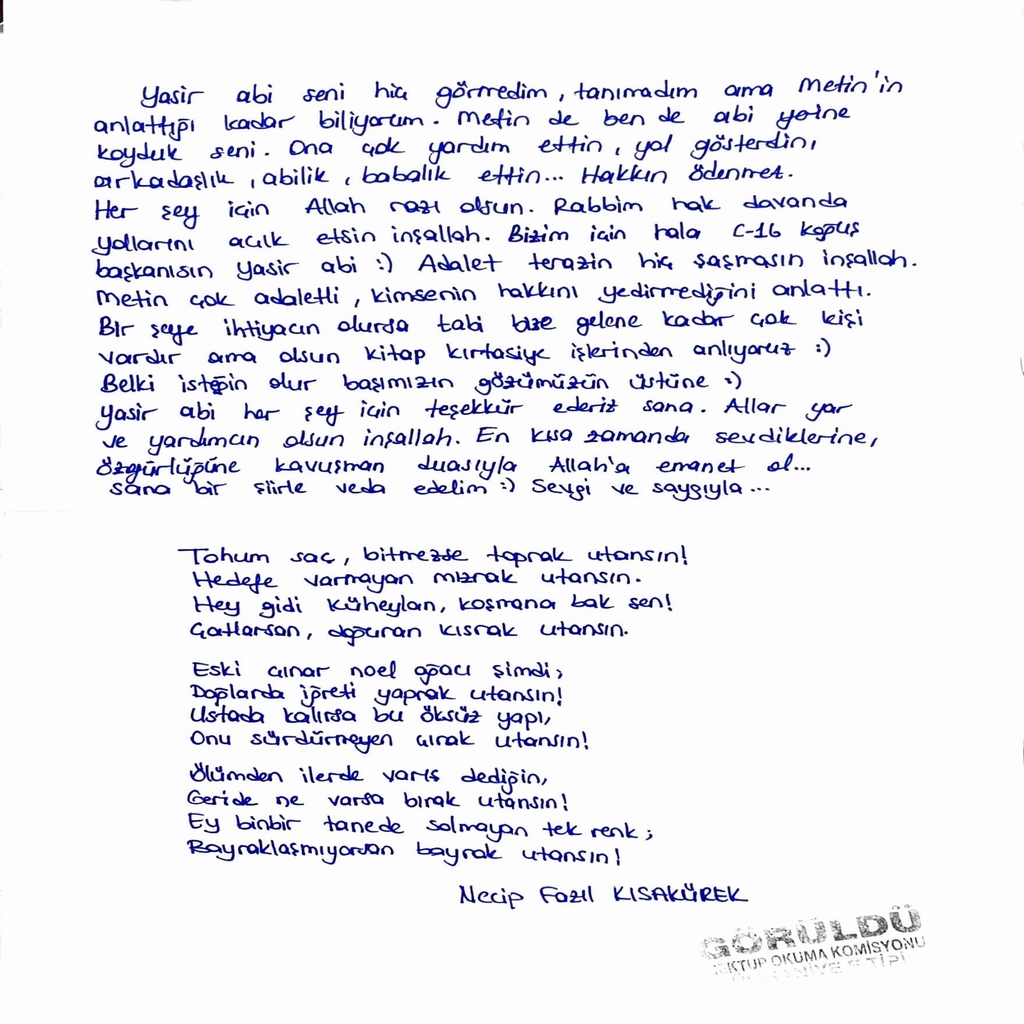 Yasir abi seni hiç görmedim, tanımadım ama Metin'in
anlattığı kadar biliyorum. Metin de ben de abi yerine
koyduk seni. Ona çok yardım ettin, yol gösterdin,
arkadaşlık, abilik, babalık ettin... Hakkın ödenmez.
Her şey için Allah razı olsun. Rabbim hak davanda
yollarını açık etsin inşallah. Bizim için hala C-16 koğuş
başkanısın Yasir abi :) Adalet terazin hiç şaşmasın inşallah.
Metin çok adaletli, kimsenin hakkını yedirmediğini anlattı.
Bir şeye ihtiyacın olursa tabi bize gelene kadar çok kişi
vardır ama olsun kitap kırtasiye işlerinden anlıyoruz :)
Belki isteğin olur başımızın gözümüzün üstüne :)
Yasir abi her şey için teşekkür ederiz sana. Allah yar
ve yardımcın olsun inşallah. En kısa zamanda sevdiklerine,
özgürlüğüne kavuşman duasıyla Allah'a emanet ol...
Sana bir şiirle veda edelim :) Sevgi ve saygıyla...
Tohum saç, bitmezse toprak utansın!
Hedefe varmayan mızrak utansın.
Hey gidi küheylan, koşmana bak sen!
Çatlarsan, doğuran kısrak utansın.
Eski çınar noel ağacı şimdi;
Dağlarda iğreti yaprak utansın!
Ustada kalırsa bu öksüz yapı,
Onu sürdürmeyen çırak utansın!
Ölümden ilerde varış dediğin,
Geride ne varsa bırak utansın!
Ey binbir tanede solmayan tek renk;
Bayraklaşmıyorsan bayrak utansın!
Necip Fazıl KISAKÜREK
GÖRÜLDÜ
MEKTUP OKUMA KOMİSYONU
E TİPİ